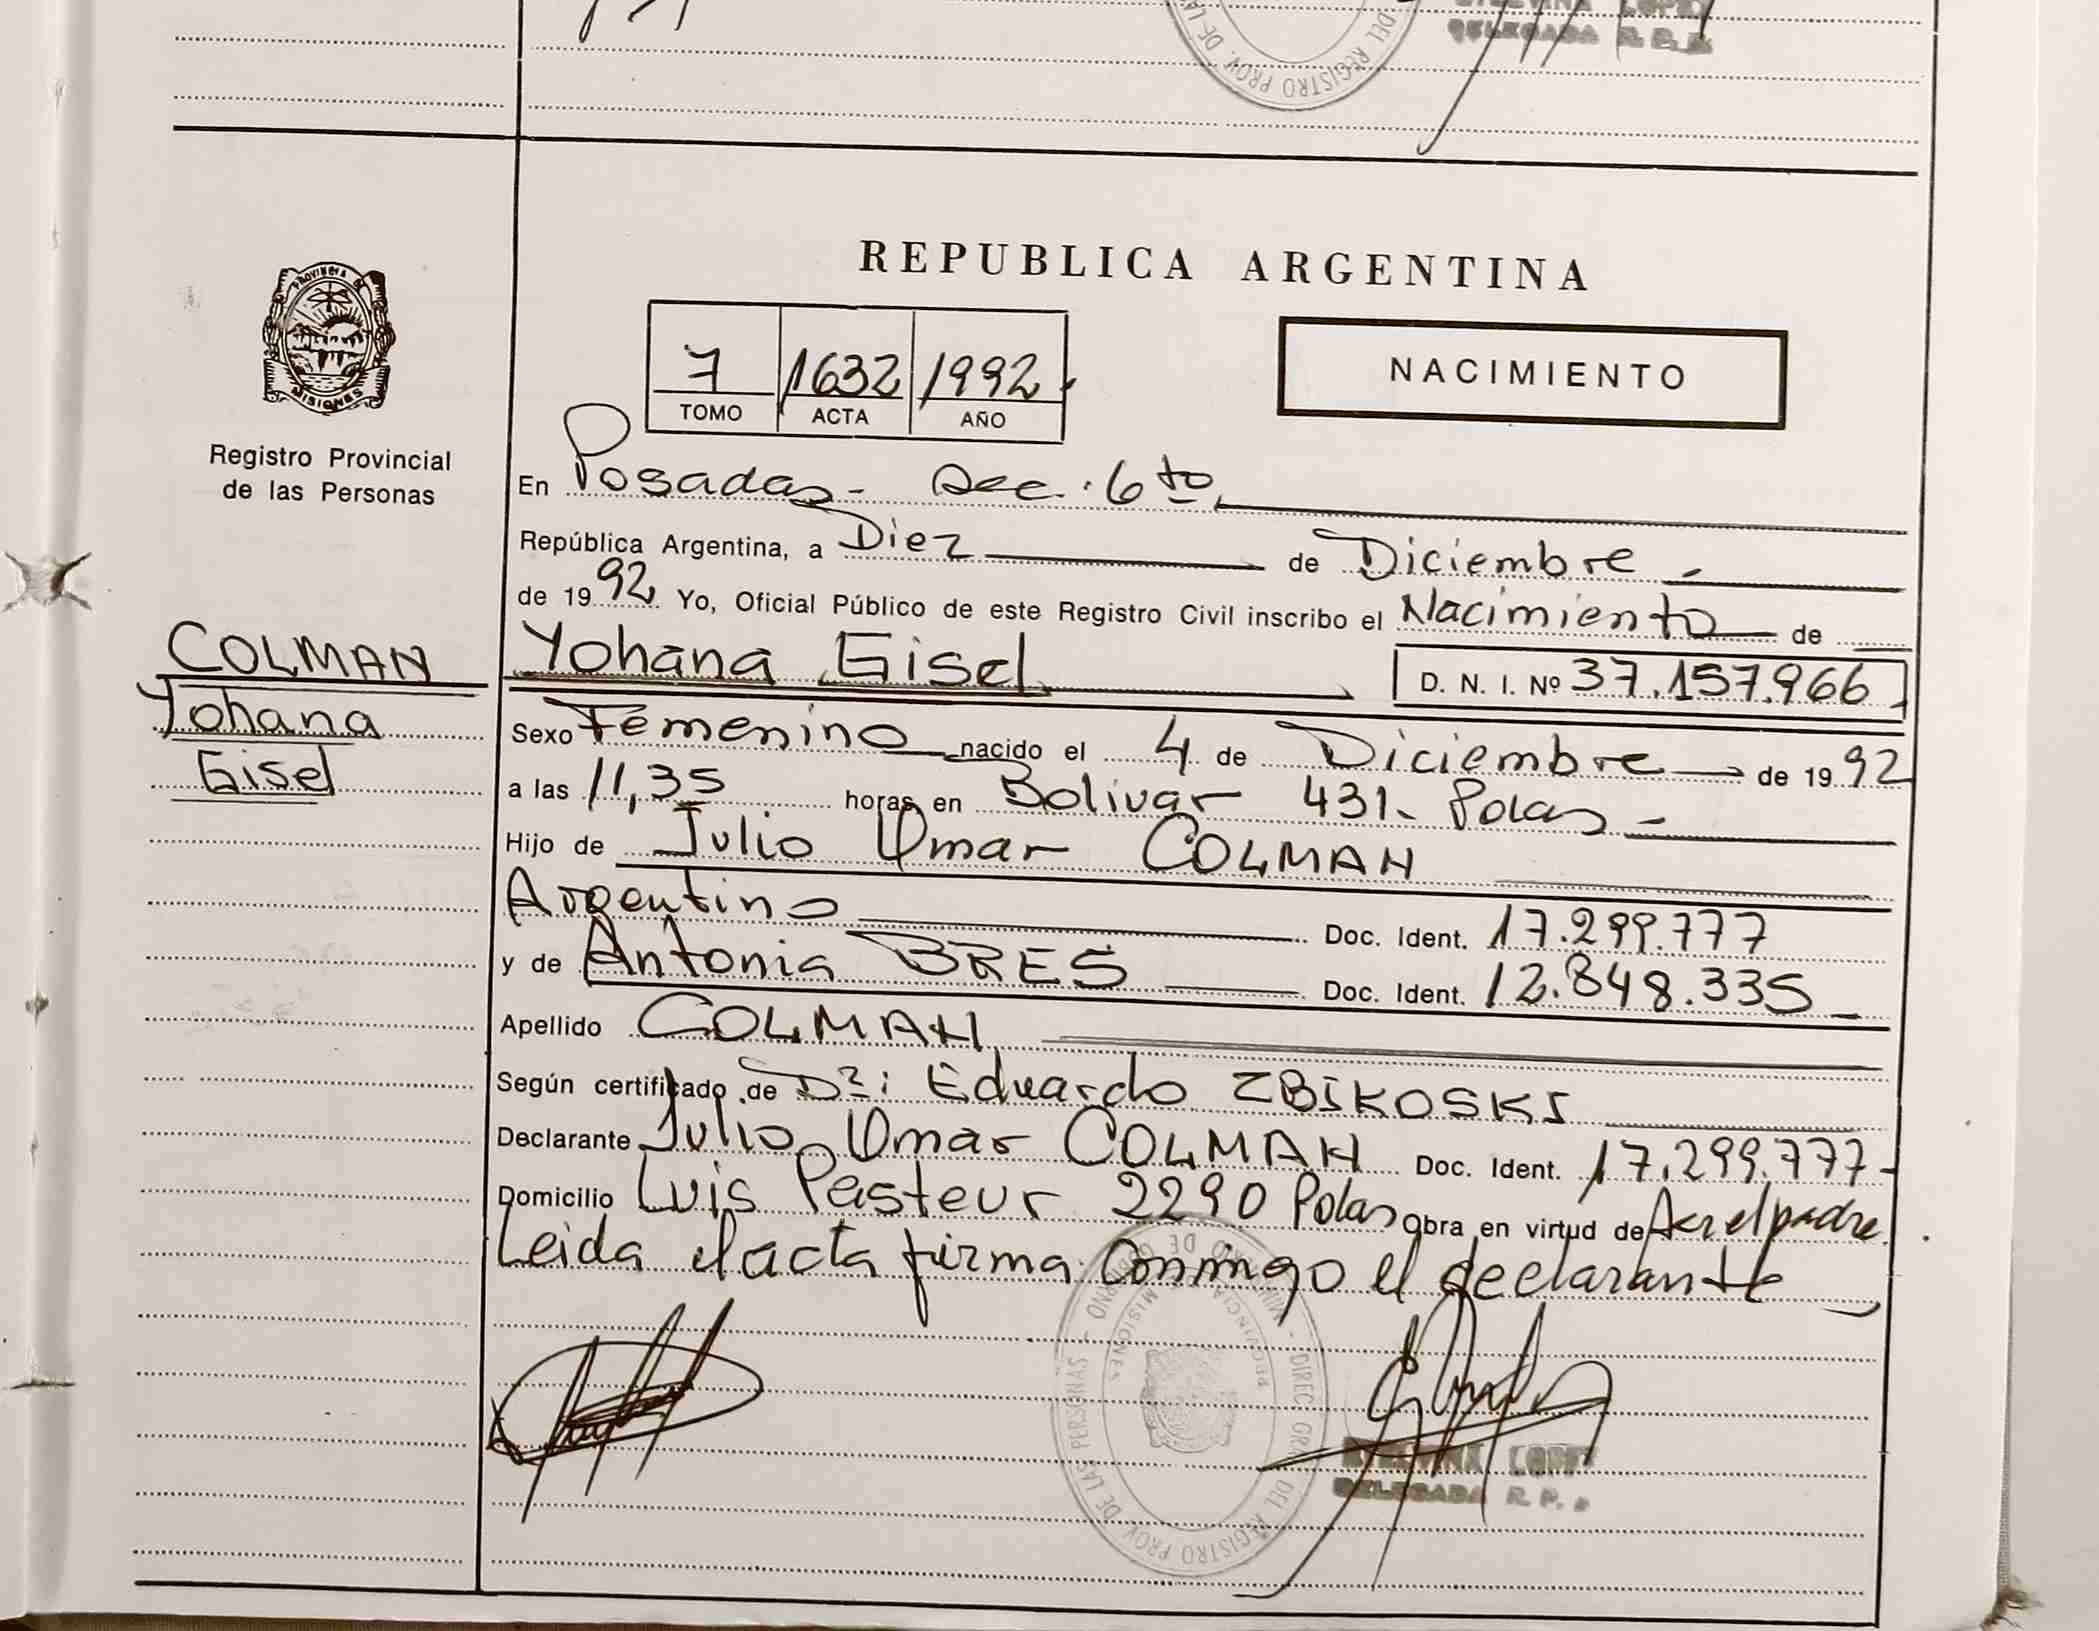 DEL REGISTRO PROV. DE LA
DELEGADA R. P.
REPUBLICA ARGENTINA
PROVINCIA DE
MISIONES
7 1632 1992
TOMO ACTA AÑO
NACIMIENTO
Registro Provincial
de las Personas
En Posadas - Sec. 6to,
República Argentina, a Diez de Diciembre -
de 1992 Yo, Oficial Público de este Registro Civil inscribo el Nacimiento de
COLMAN
Yohana
Gisel
Yohana Gisel D. N. I. Nº 37.157.966
Sexo Femenino nacido el 4 de Diciembre de 1992
a las 11,35 horas en Bolivar 431- Pdas -
Hijo de Julio Omar COLMAN
Argentino Doc. Ident. 17.299.777
y de Antonia BRES Doc. Ident. 12.848.335
Apellido COLMAN
Según certificado de Dr: Eduardo ZBIKOSKI
Declarante Julio Omar COLMAN Doc. Ident. 17.299.777-
Domicilio Luis Pasteur 2290 Pdas obra en virtud de ser el padre.
Leida el acta firma conmigo el declarante
MINISTRO DE GOBIERNO - DIREC. GRAL. DEL REGISTRO PROV. DE LAS PERSONAS
PROVINCIA DE MISIONES
LOPEZ
DELEGADA R. P.